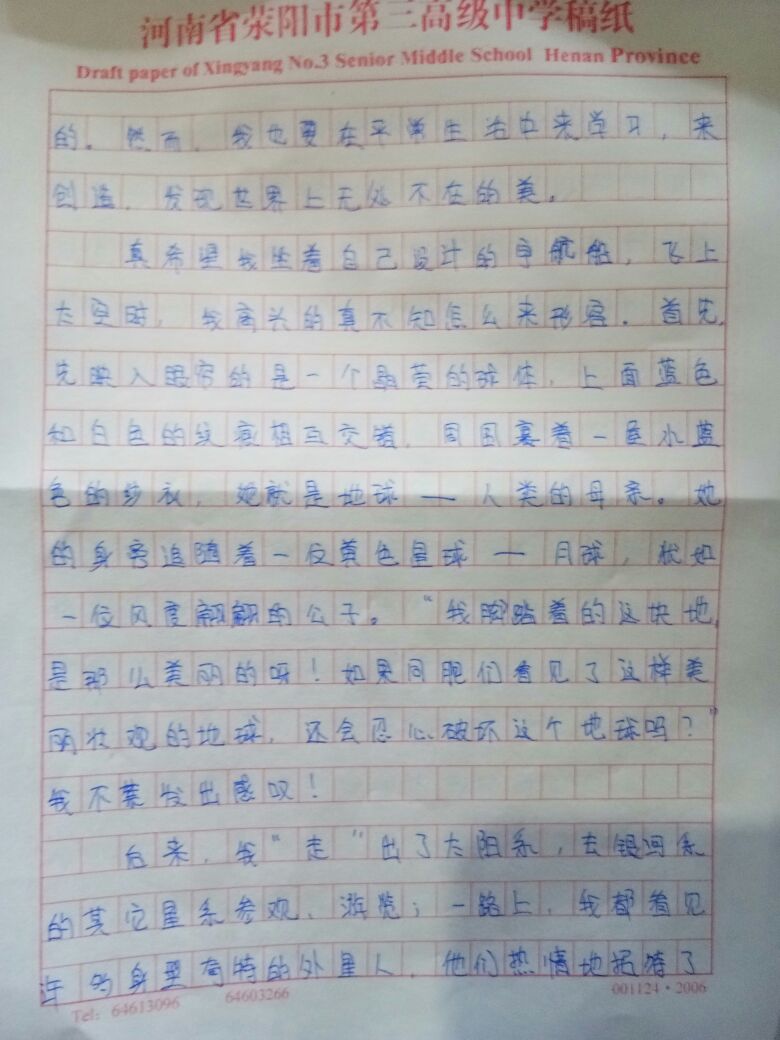 河南省荥阳市第三高级中学稿纸
Draft paper of Xingyang No.3 Senior Middle School Henan Province
的。然而，我也要在平常生活中来学习，来
创造、发现世界上无处不在的美。
真希望我坐着自己设计的宇航船，飞上
太空时，我高兴的真不知怎么来形容。首先，
先映入眼帘的是一个晶莹的球体，上面蓝色
和白色的纹痕相互交错，周围裹着一层水蓝
色的纱衣，她就是地球——人类的母亲。她
的身旁追随着一位黄色星球——月球，犹如
一位风度翩翩的公子。“我脚踏着的这块地，
是那么美丽的呀！如果同胞们看见了这样美
丽壮观的地球，还会忍心破坏这个地球吗？”
我不禁发出感叹！
后来，我“走”出了太阳系，去银河系
的其它星系参观、游览；一路上，我都看见
许多身型奇特的外星人，他们热情地招待了
Tel: 64613096 64603266 001124·2006